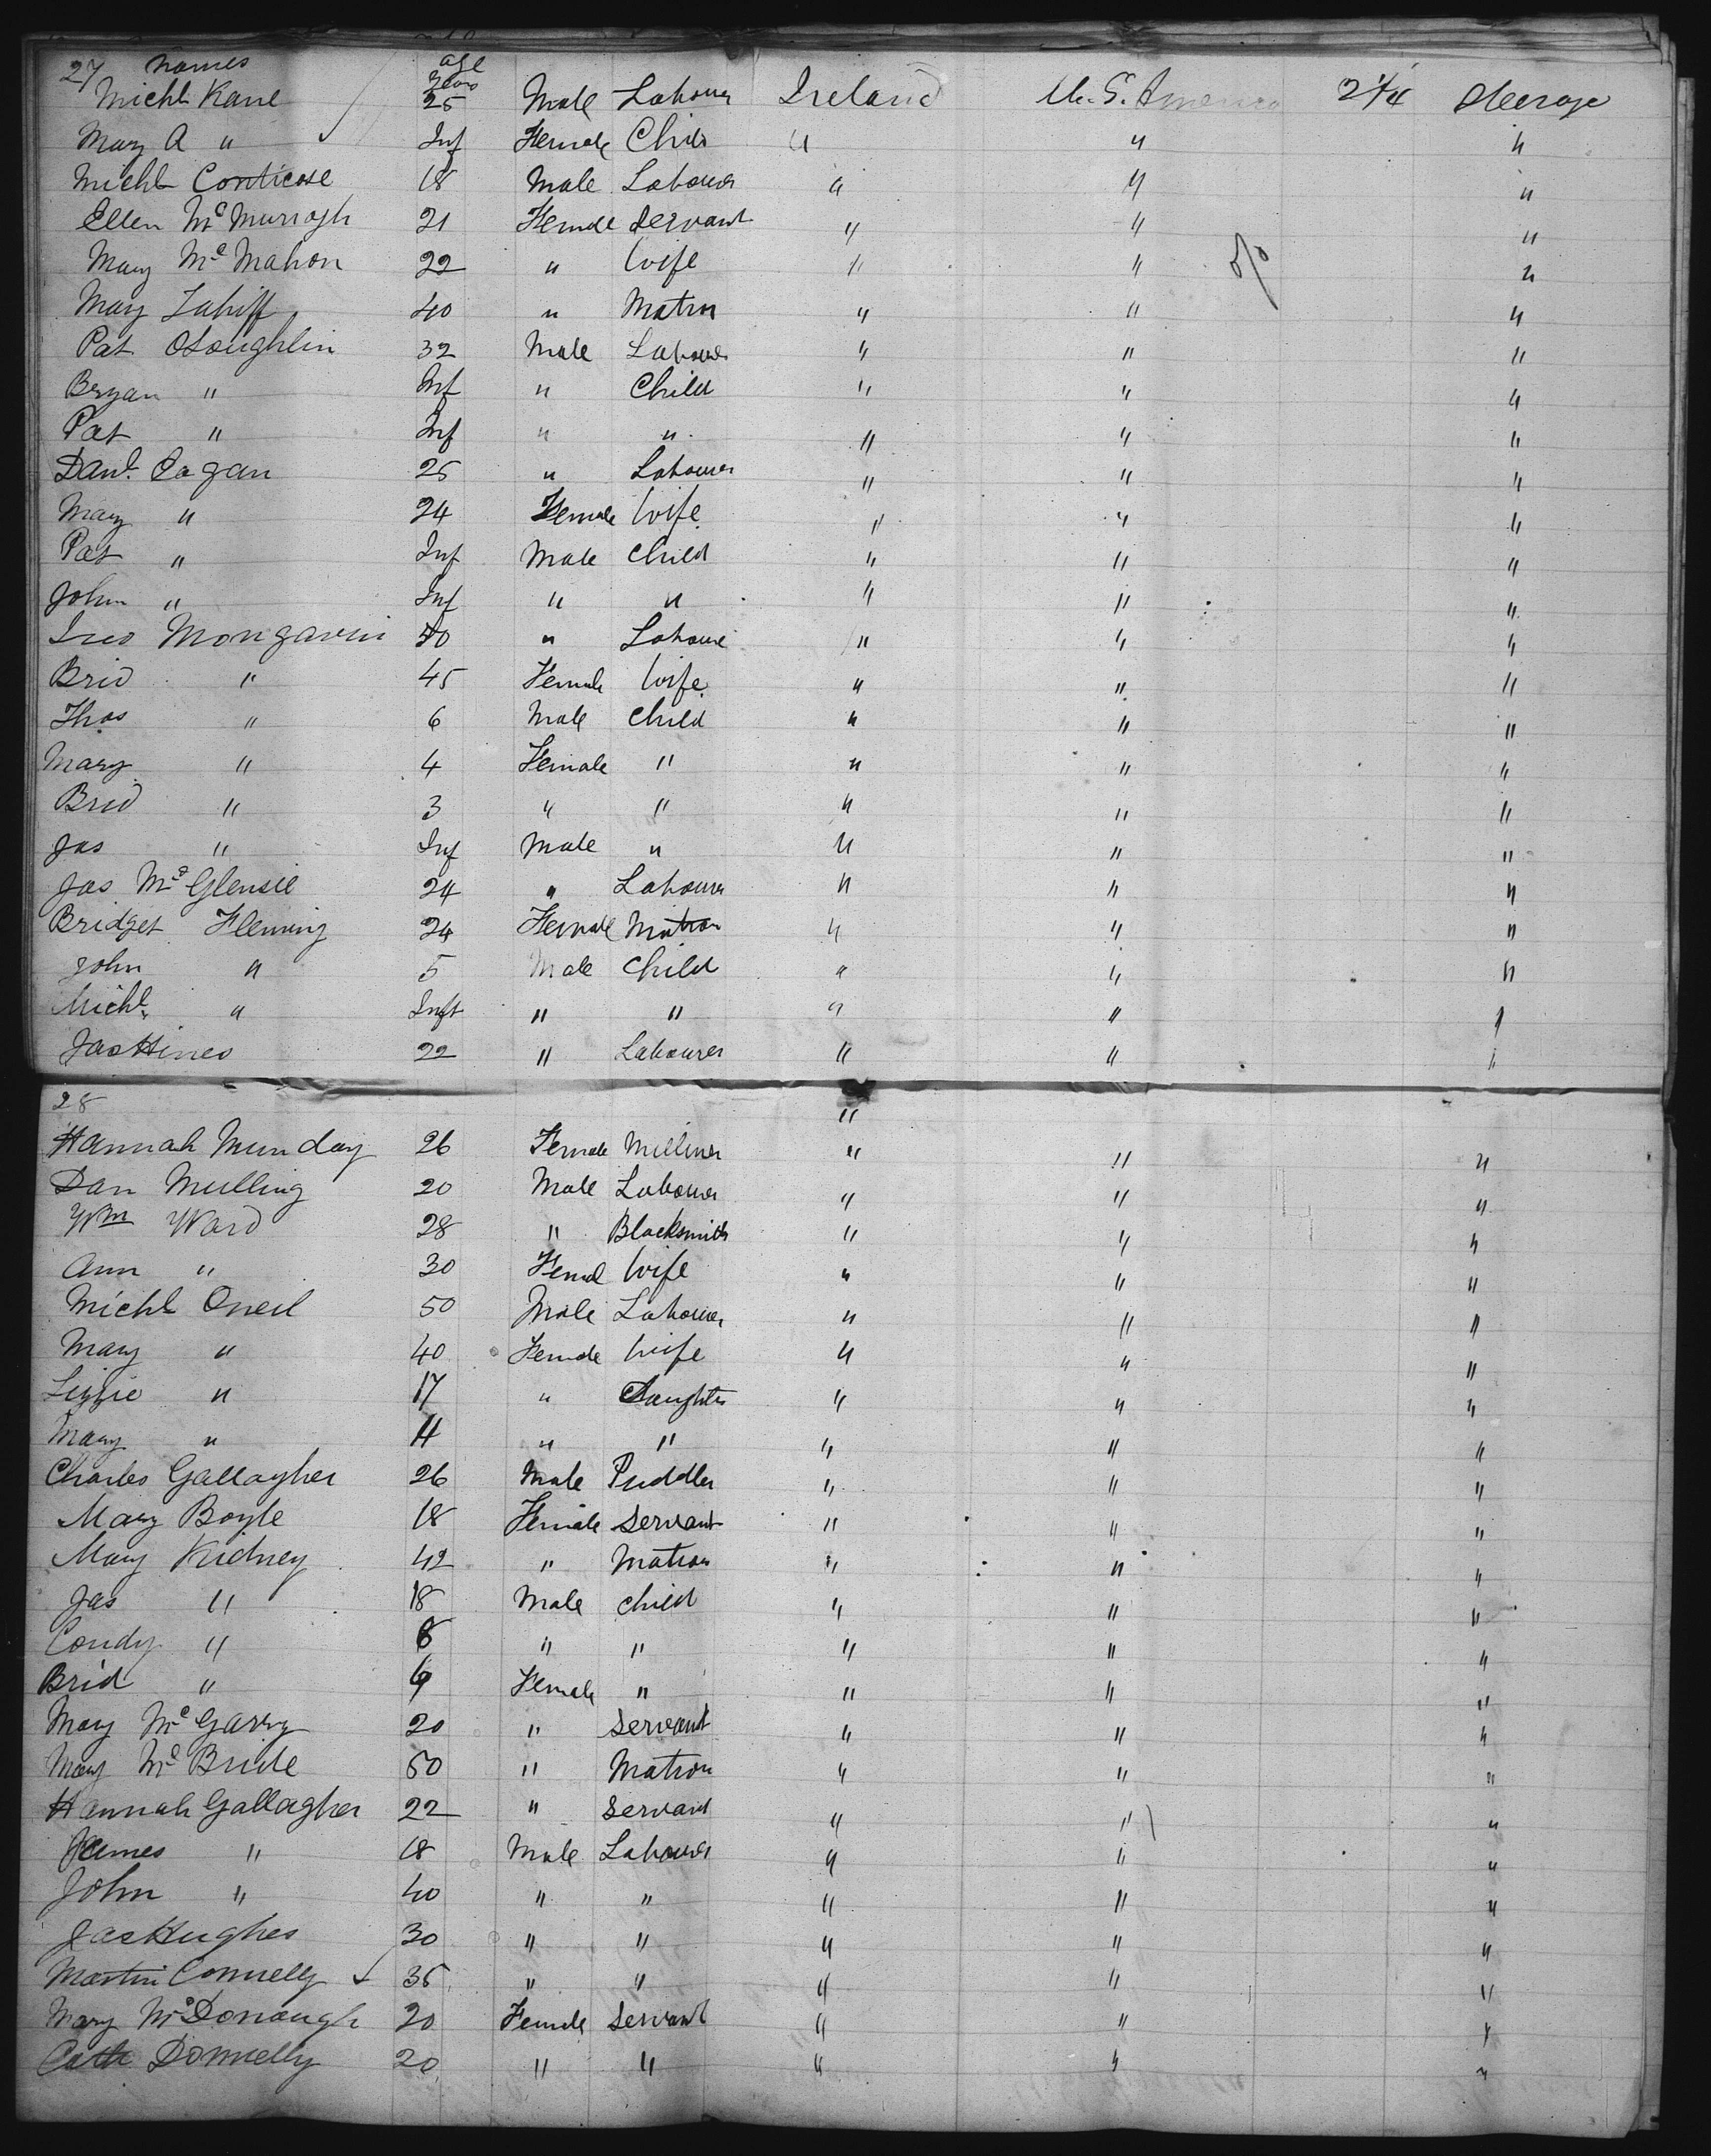 27 Names age
years
Michl Kane 25 Male Labourer Ireland U. S. America 2 1/4 Steerage
Mary A " Inf Female Child " " "
Michl 18 Male Labourer " " "
Ellen McMurrogh 21 Female Servant " " "
Mary McMahon 22 " Wife " " "
Mary Lahiff 40 " Matron " " "
Pat OLoughlin 32 Male Labourer " " "
Bryan " Inf " Child " " "
Pat " Inf " " " " "
Danl. Cagan 25 " Labourer " " "
Mary " 24 Female Wife " " "
Pat " Inf Male Child " " "
John " Inf " " " " "
Mongavin " Labourer " " "
Brid " 45 Female Wife " " "
Thos " 6 Male Child " " "
Mary " 4 Female " " " "
Brid " 3 " " " " "
Jas " Inf Male " " " "
Jas 24 " Labourer " " "
Bridget Fleming 24 Female Matron " " "
John " 5 Male Child " " "
Michl. " Inft " " " " "
Jas Hines 22 " Labourer " " "
28 "
Hannah Munday 26 Female Milliner " " "
Dan Mulling 20 Male Labourer " " "
Wm Ward 28 " Blacksmith " " "
Ann " 30 Femal Wife " " "
Michl Oneil 50 Male Labourer " " "
Mary " 40 Female Wife " " "
Lizzie " 17 " Daughter " " "
Mary " " " " " "
Charles Gallagher 26 Male Puddler " " "
Mary Boyle 18 Female Servant " " "
Mary Kidney 42 " Matron " " "
Jas " 18 Male Child " " "
Condy " 8 " " " " "
Brid " Female " " " "
Mary McGarry 20 " Servant " " "
Mary McBride 50 " Matron " " "
Hannah Gallagher 22 " Servant " " "
James " 18 Male Labourer " " "
John " 40 " " " " "
Jas Hughes 30 " " " " "
Martin Connelly 35 " " " " "
Mary McDonaugh 20 Female Servant " " "
Cath Donnelly 20 " " " " "